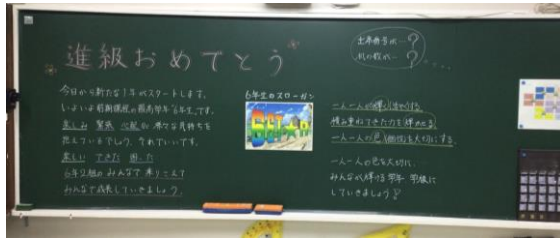 進級おめでとう
出席番号が…?
机の数が…?
今日から新たな1年がスタートします。
いよいよ前期課程の最高学年"6年生"です。
楽しみ 緊張 心配 に 様々な気持ちを
抱えているでしょう。それでいいです。
楽しい できた 困った
6年2組のみんなで乗りこえて
みんなで成長していきましょう。
6年生のスローガン
一人一人が輝く
積み重ねてきた力を輝かせる
一人一人の色(個性)を大切にする
一人一人の色を大切に、
みんなが輝ける学年 学級に
していきましょう